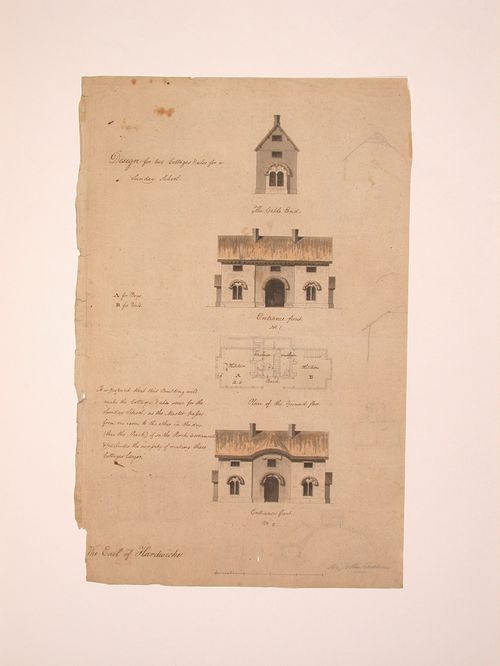 Design for two Cottages & also for a
Sunday School.
The Gable End.
Entrance front.
No. 1.
A for Boys.
B for Girls.
Kitchen
A
Kitchen
B
Plan of the Ground floor.
It is proposed that this Building will
make the Cottages & also serve for the
Sunday School, as the Master passes
from one room to the other in the day
(thro' the Porch) if so the Porch
& precludes the necessity of making these
Cottages larger.
Entrance front.
No. 2.
The Earl of Hardwicke